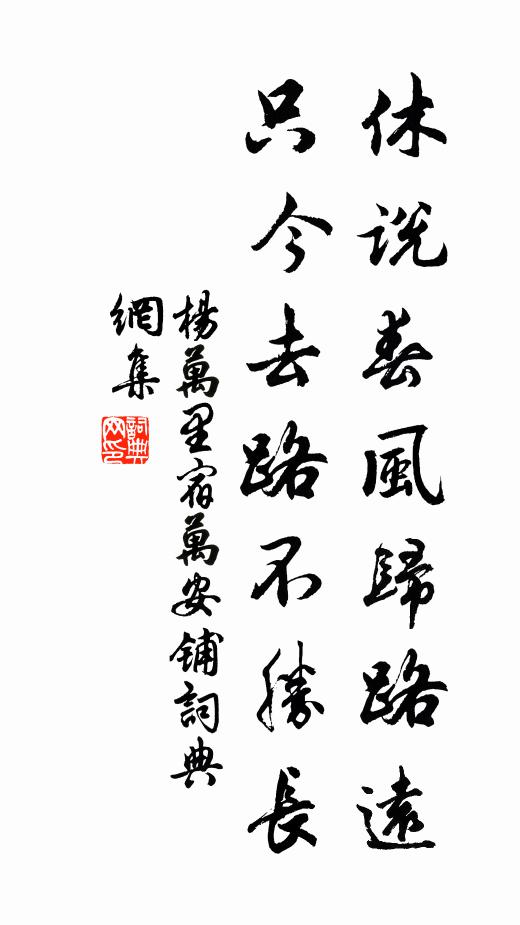 休說春風歸路遠
只今去路不勝長
楊萬里宿萬安鋪詞典
網集
詞典
网印